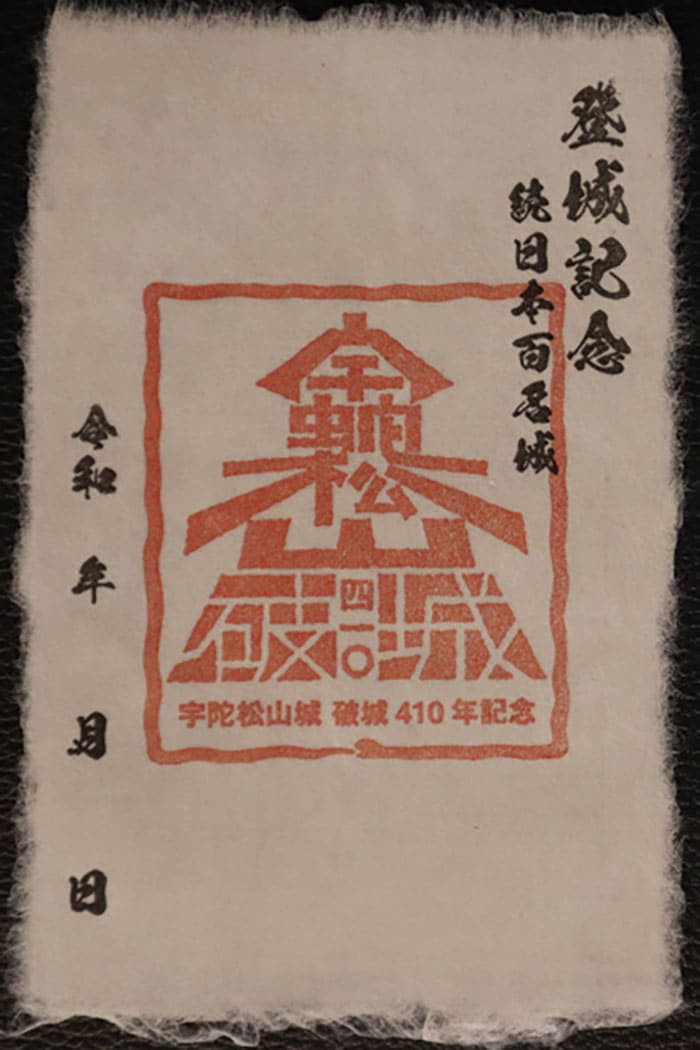 登城記念
続日本百名城
宇陀
松
山
破四一〇城
宇陀松山城 破城 410 年記念
令和 年 月 日